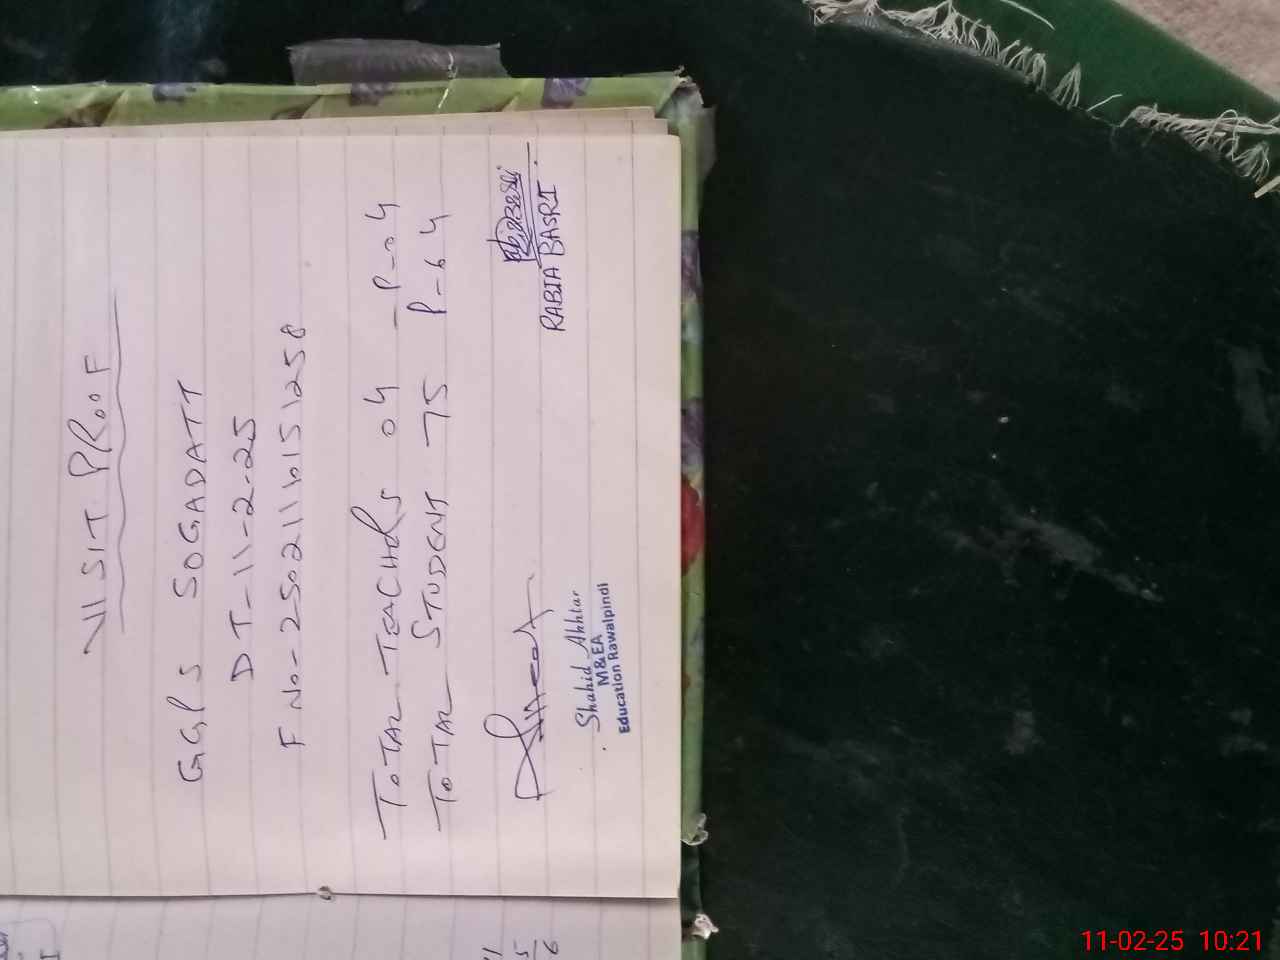 VISIT PROOF
GGPS SOGADATT
DT-11-2-25
F No-25021110151258
TOTAL TEACHRS 04 - P-04
TOTAL STUDENT 75 P-64
RABIA BASRI
Shahid Akhtar
M&EA
Education Rawalpindi
11-02-25 10:21